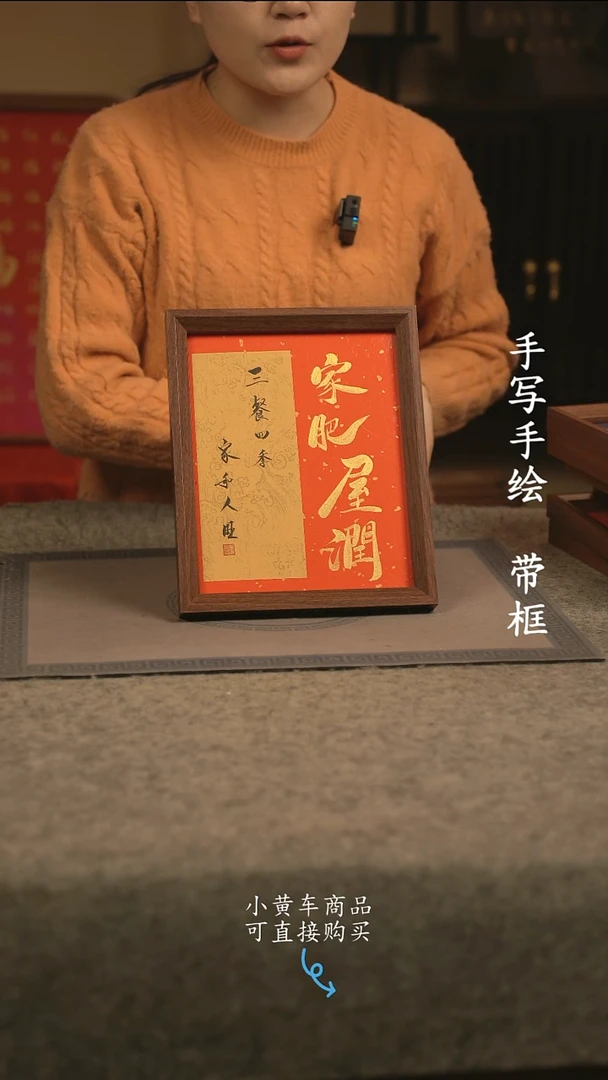 家肥屋潤
三餐四季
家和人旺
手写手绘 带框
小黄车商品
可直接购买